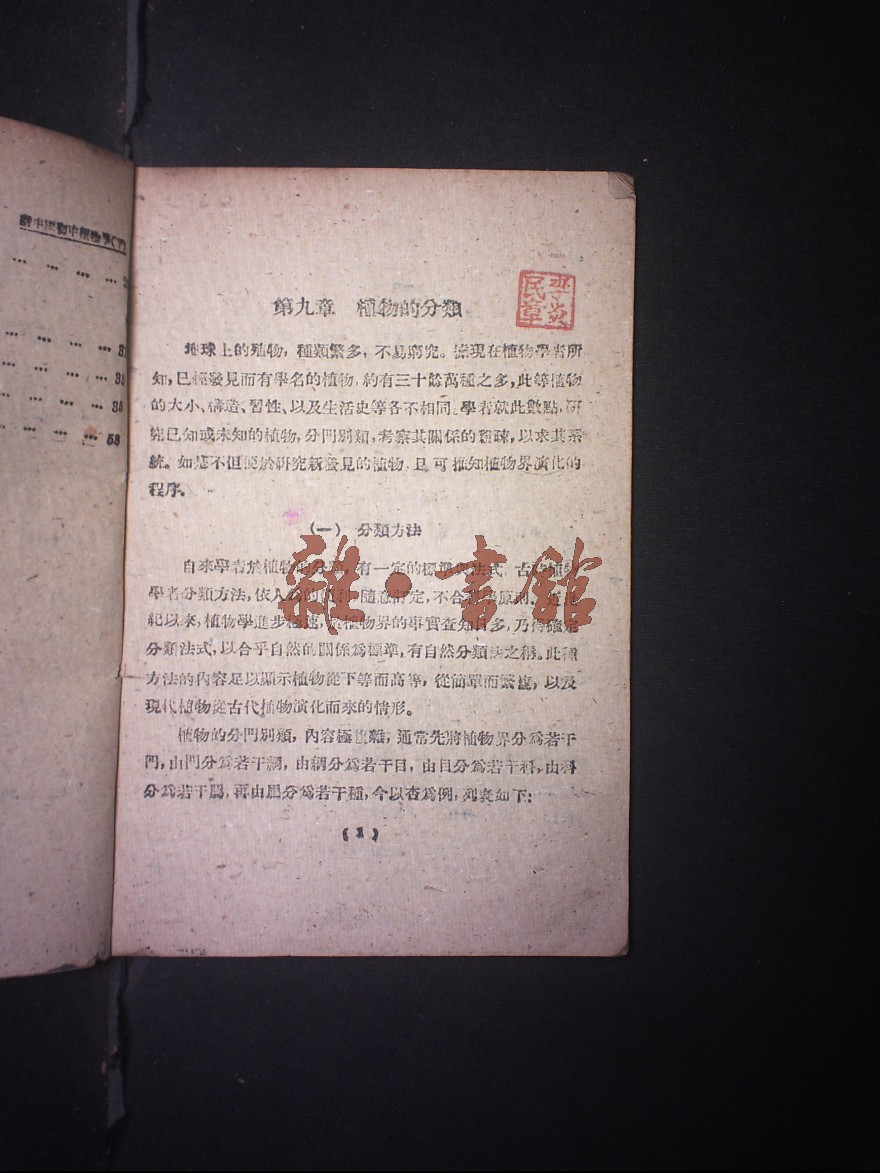 … … … …
… … … 31
… … … 35
… … … 35
… … … 53
第九章 植物的分類
地球上的植物，種類繁多，不易窮究。據現在植物學者所
知，已經發見而有學名的植物，約有三十餘萬種之多，此等植物
的大小、構造、習性、以及生活史等各不相同。學者就此數點，研
究已知或未知的植物，分門別類，考察其關係的親疎，以求其系
統。如是不但便於研究新發見的植物，且可推知植物界演化的
程序。
（一） 分類方法
自來學者於植物的分類，有一定的標準與法式 古代植物
學者分類方法，依人爲的便利，隨意訂定，不合 原則。近
紀以來，植物學進步極速，於植物界的事實查知日多，乃得確定
分類法式，以合乎自然的關係爲標準，有自然分類法之稱。此種
方法的內容足以顯示植物從下等而高等，從簡單而繁複，以及
現代植物從古代植物演化而來的情形。
植物的分門別類，內容極複雜，通常先將植物界分爲若干
門，由門分爲若干綱，由綱分爲若干目，由目分爲若干科，由科
分爲若干屬，再由屬分爲若干種，今以杏爲例，列表如下：
(1)
雜·書館